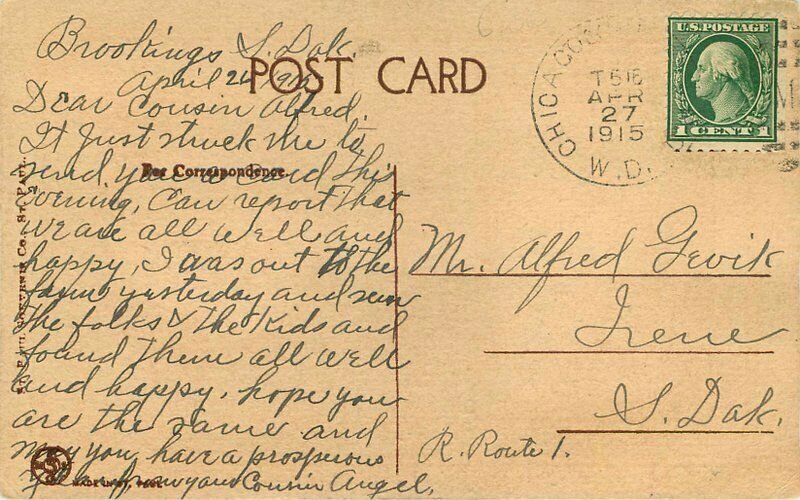 Brookings S. Dak.
April 26 1915
POST CARD
For Correspondence.
Dear Cousin Alfred.
It Just struck me to
send you a card this
evening, Can report that
we are all well and
happy, I was out to the
farm yesterday and seen
the folks & the Kids and
found them all well
and happy, hope you
are the same and
may you have a prosperous
year from your Cousin Angel.
U.S. POSTAGE
1 CENT 1
CHICAGO
APR
27
1915
W.D.
Mr. Alfred Gevik
Irene
S. Dak.
R. Route 1.
ST. PAUL SOUVENIR CO., ST. PAUL.